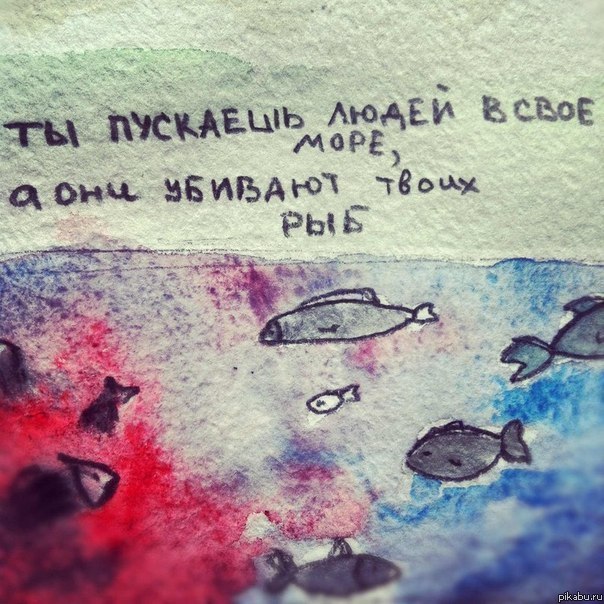 ты пускаешь людей в свое
море,
а они убивают твоих
рыб
pikabu.ru